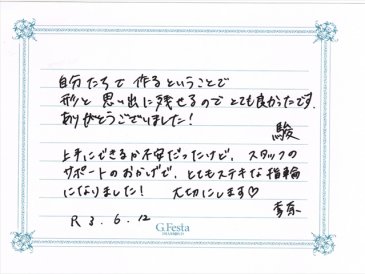 自分たちで 作るということで
形と 思い出に残せるので とても良かったです
ありがとうございました!
駿
上手にできるか不安だったけど、スタッフの
サポートのおかげで、とてもステキな指輪
になりました! 大切にします♡
R 3. 6. 12
G.Festa